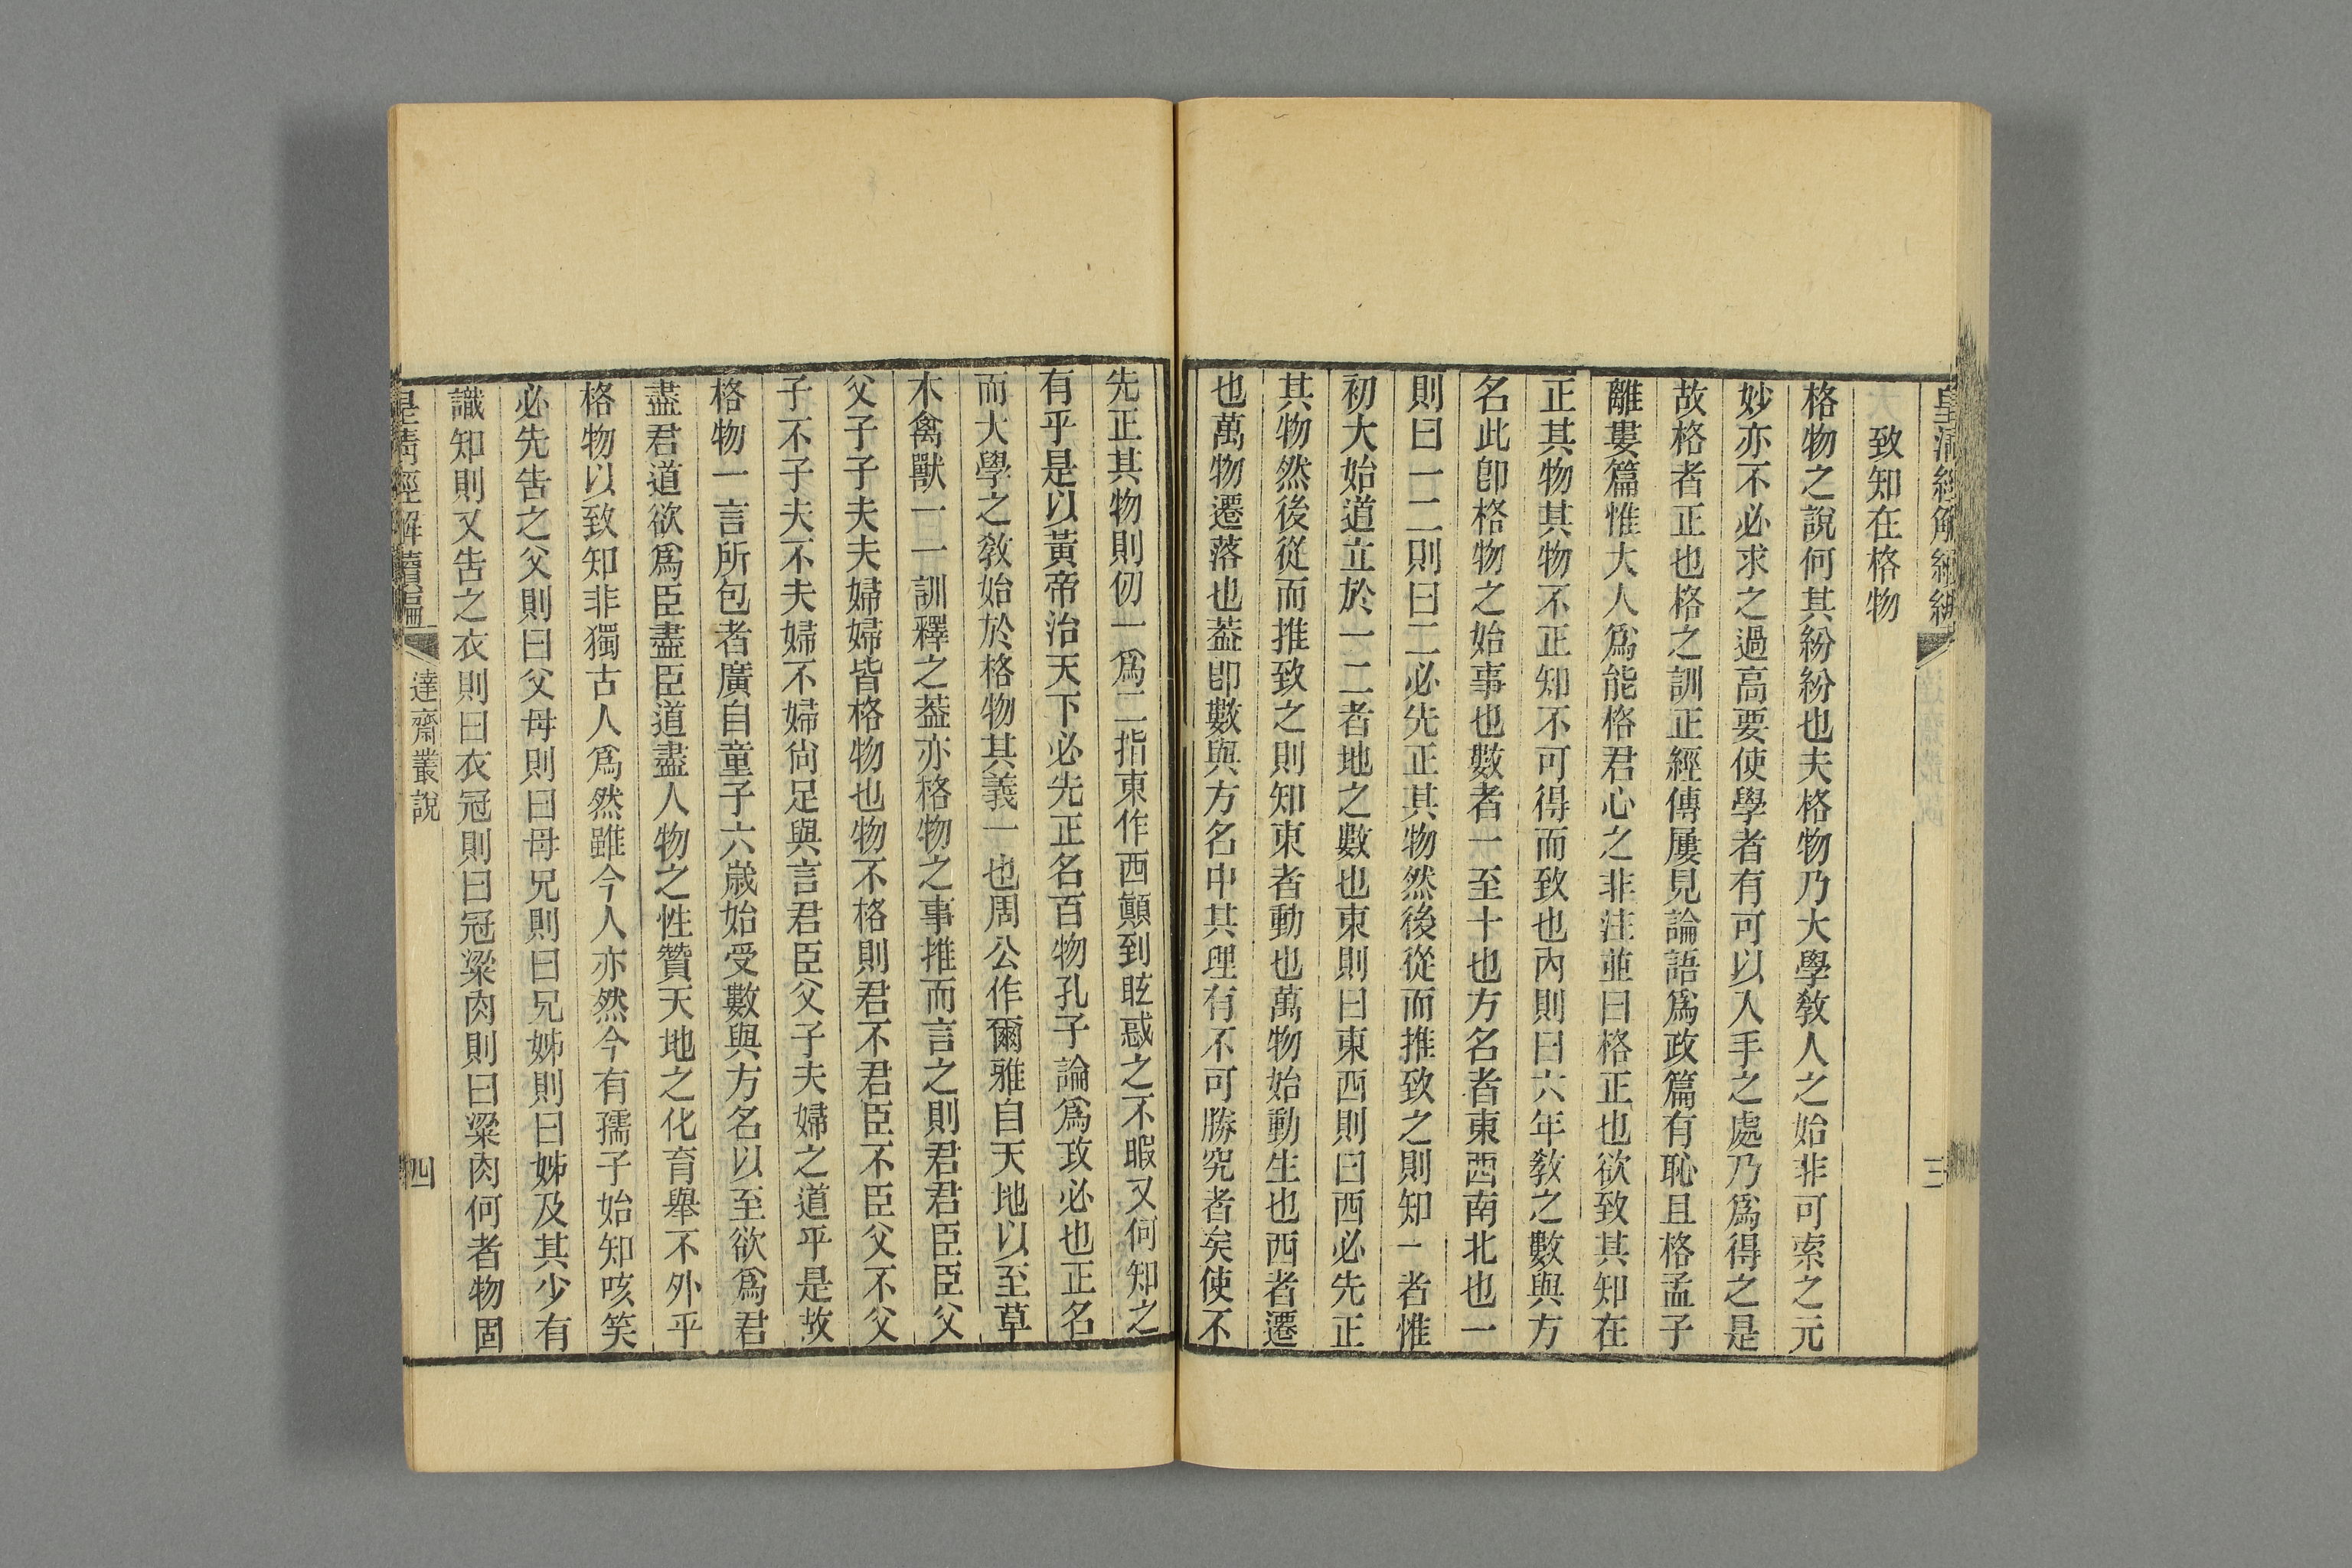 皇清經解續編
三
致知在格物
格物之說何其紛紛也夫格物乃大學敎人之始非可索之元
妙亦不必求之過高要使學者有可以入手之處乃爲得之是
故格者正也格之訓正經傳屢見論語爲政篇有恥且格孟子
離婁篇惟大人爲能格君心之非注並曰格正也欲致其知在
正其物其物不正知不可得而致也內則曰六年敎之數與方
名此卽格物之始事也數者一至十也方名者東西南北也一
則曰一二則曰二必先正其物然後從而推致之則知一者惟
初大始道立於一二者地之數也東則曰東西則曰西必先正
其物然後從而推致之則知東者動也萬物始動生也西者遷
也萬物遷落也葢卽數與方名中其理有不可勝究者矣使不
先正其物則仞一爲二指東作西顚到眩惑之不暇又何知之
有乎是以黃帝治天下必先正名百物孔子論爲政必也正名
而大學之敎始於格物其義一也周公作爾雅自天地以至草
木禽獸一一訓釋之葢亦格物之事推而言之則君君臣臣父
父子子夫夫婦婦皆格物也物不格則君不君臣不臣父不父
子不子夫不夫婦不婦尙足與言君臣父子夫婦之道乎是故
格物一言所包者廣自童子六歲始受數與方名以至欲爲君
盡君道欲爲臣盡臣道盡人物之性贊天地之化育舉不外乎
格物以致知非獨古人爲然雖今人亦然今有孺子始知咳笑
必先告之父則曰父母則曰母兄則曰兄姊則曰姊及其少有
識知則又告之衣則曰衣冠則曰冠粱肉則曰粱肉何者物固
皇清經解續編
達齋叢說
四